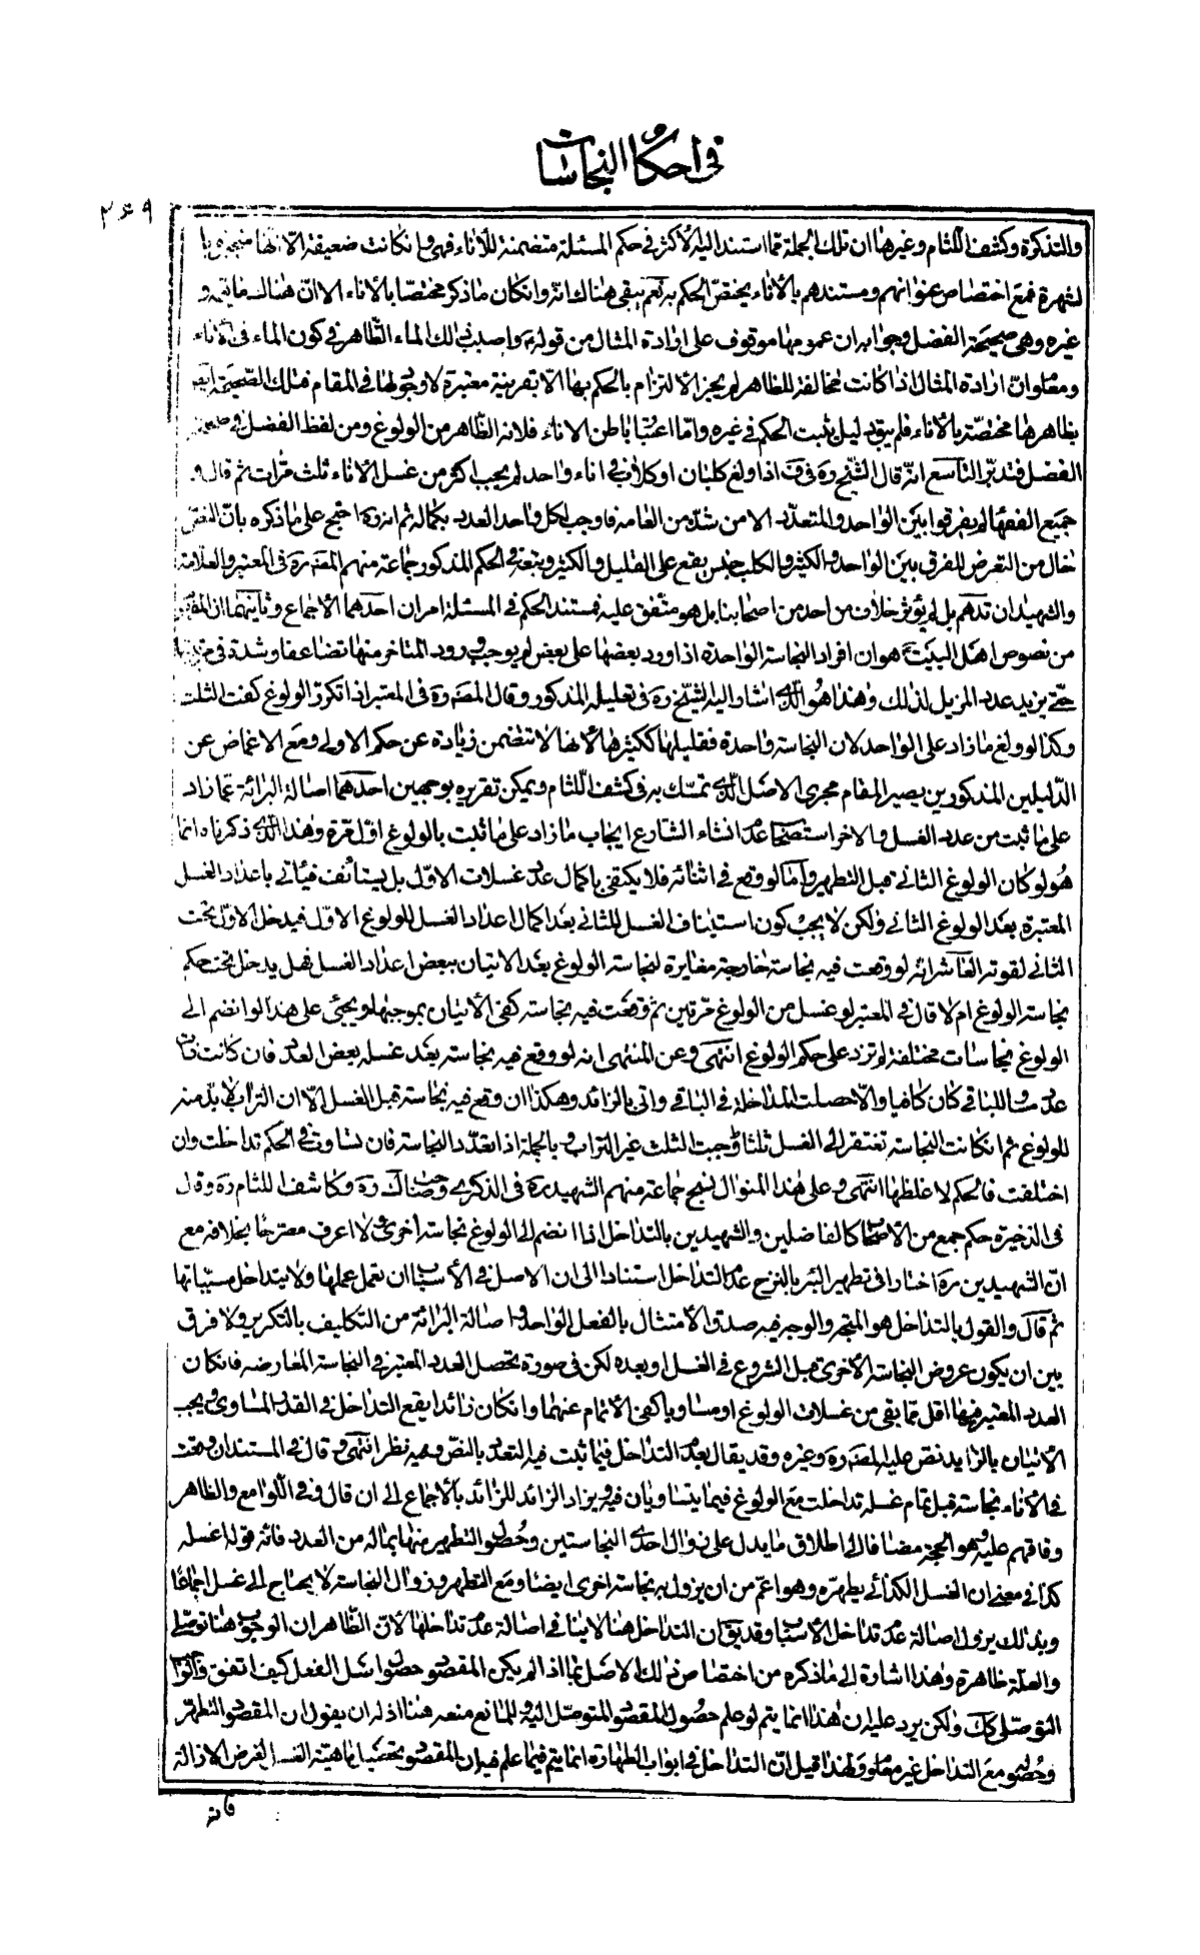 في احكام النجاسات
٢۶٩
والتذكرة وكشف اللثام وغيرها ان تلك الجملة مما استند اليه الأكثر في حكم المسئلة متضمنة للأناء فهى وإنكانت ضعيفة الّا انها منجبرة با
لشهرة فمع اختصاص عنوانهم ومستندهم بالأناء يختصّ الحكم به نعم يبقى هناك انّه وانكان ماذكر مختصّا بالأناء الا انّ هناك مايعمه و
غيره وهى صحيحة الفضل وجوابه ان عمومها موقوف على ارادة المثال من قوله واصبب ذلك الماء الظّاهر في كون الماء في الأناء
ومعلوم انّ ارادة المثال اذا كانت مخالفة للظاهر لم يجز الالتزام بالحكم بها الّا بقرينة معتبرة لا وجود لها في المقام فتلك الصّحيحة ايضا
بظاهرها مختصّة بالأناء فلم يبق دليل يثبت الحكم في غيره وامّا اعتبار باطن الاناء فلانه الظّاهر من الولوغ ومن لفظ الفضل في صحيحة
الفضل فتدبّر التاسع انّه قال الشّيخ ره في ف اذا ولغ كلبان او كلاب في اناء واحد لم يجب اكثر من غسل الأناء ثلث مرّات ثم قال و
جميع الفقهاء لم يفرقوا بين الواحد والمتعدّد الا من شذّ من العامه فاوجب لكل واحد العدد بكماله ثم انه ره احتج على ماذكره بانّ النصّ
خال من التعرض للفرق بين الواحد والكثير والكلب جنس يقع على القليل والكثير وتبعه في الحكم المذكور جماعة منهم المصّ ره في المعتبر والعلامة
والشهيدان قدهم بل لم يؤثر خلاف من احد من اصحابنا بل هو متّفق عليه فمستند الحكم في المسئلة امران احدهما الأجماع وثانيهما ان المفهوم
من نصوص اهل البيت هو ان افراد النجاسة الواحدة اذا ورد بعضها على بعض لم يوجب ورود المتاخر منها تضاعفا وشدة في
حتّى يزيد عدد المزيل لذلك وهذا هو الّذي اشار اليه الشّيخ ره في تعليله المذكور وقال المصّ ره في المعتبر اذا تكرّر الولوغ كفت الثلث
وكذا لو ولغ مازاد على الواحد لان النجاسة واحدة فقليلها ككثيرها لأنها لا تتضمن زيادة عن حكم الاولى ومع الاغماض عن
الدّليلين المذكورين يصير المقام مجرى الاصل الّذي تمسّك به في كشف اللّثام ويمكن تقريره بوجهين احدهما اصالة البرائة عمّا زاد
على ما ثبت من عدد الغسل والاخر استصحاب عدم انشاء الشارع ايجاب ما زاد على ما ثبت بالولوغ اوّل مرّة وهذا الّذي ذكرناه انما
هو لو كان الولوغ الثاني قبل التطهير وامّا لو وقع في اثنائه فلا يكتفى باكمال عدد غسلات الاوّل بل يستأنف فيأتي باعداد الغسل
المعتبرة بعد الولوغ الثاني ولكن لا يجب كون استيناف الغسل للثاني بعد اكمال اعداد الغسل للولوغ الاوّل فيدخل الاوّل تحت
الثاني لقوته العاشر انّه لو وقعت فيه نجاسة خارجة مغايرة لنجاسة الولوغ بعد الاتيان ببعض اعداد الغسل فهل يدخل تحت حكم
نجاسة الولوغ ام لا قال في المعتبر لو غسل من الولوغ مرّتين ثم وقعت فيه نجاسة كفى الأتيان بموجبها ويجيئ على هذا لو انضم الى
الولوغ نجاسات مختلفة لم تزد على حكم الولوغ انتهى وعن المنتهى انه لو وقع فيه نجاسة بعد غسله بعض العدد فان كانت ذات
عدد مساو للباقي كان كافيا والّا حصلت المداخلة في الباقي واتى بالزائد وهكذا ان وقع فيه نجاسة قبل الغسل الّا ان التراب لا بدّ منه
للولوغ ثم انكانت النجاسة تفتقر الى الغسل ثلثا وجبت الثلث غير التراب وبالجملة اذا تعدّد النجاسة فان تساوت في الحكم تداخلت وان
اختلفت فالحكم لاغلظها انتهى وعلى هذا المنوال نسج جماعة منهم الشهيد ره في الذكرى وصاحب ك ره وكاشف اللثام ره وقال
في الذخيرة حكم جمع من الاصحاب كالفاضلين والشهيدين بالتداخل اذا انضم الى الولوغ نجاسة أخرى ولا اعرف مصرحا بخلافه مع
انّ الشهيدين ره اختارا في تطهير البئر بالنزح عدم التداخل استنادا الى ان الاصل في الأسباب ان تعمل عملها ولا يتداخل مسبّباتها
ثم قال والقول بالتداخل هو المتجه والوجه فيه صدق الأمتثال بالفعل الواحد واصالة البرائة من التكليف بالتكرير ولا فرق
بين ان يكون عروض النجاسة الأخرى قبل الشروع في الغسل او بعده لكن في صورة تحصل العدد المعتبر في النجاسة العارضه فانكان
العدد المعتبر فيها اقل ممّا بقى من غسلات الولوغ او مساويا كفى الأتمام عنهما وانكان زائدا يقع التداخل في القدر المساوى ويجب
الأتيان بالزايد نص عليه المصّ ره وغيره وقد يقال بعدم التداخل فيما ثبت فيه التعدد بالنصّ وفيه نظر انتهى وقال في المستند ان وقعت
في الأناء نجاسة قبل تمام غسله تداخلت مع الولوغ فيما يتساويان فيه ويزاد الزائد للزائد بالأجماع الى ان قال وفي اللّوامع والظاهر
وفاقهم عليه وهو الحجة مضافا الى اطلاق مايدل على زوال احدى النجاستين وحصول التطهير منها بماله من العدد فانّه قوله اغسله
كذا في معنى ان الغسل الكذائى يطهّره وهو اعمّ من ان يزول به نجاسة اخرى ايضا ومع التطهر وزوال النجاسة لا يحتاج الى غسل اجماعا
وبذلك يزول اصالة عدم تداخل الأسباب وقد يقق ان التداخل هنا لا ينافي اصالة عدم تداخلها لأنّ الظّاهر ان الوجوب هنا توصّلي
والعلة ظاهرة وهذا اشارة الى ماذكره من اختصاص ذلك الاصل بما اذا لم يكن المقصود حصول اصل الفعل كيف اتفق والواجب
التوصّلى كك ولكن يرد عليه ان هذا انما يتم لو علم حصول المقصود المتوصّل اليه وللمانع منعه هنا اذ له ان يقول ان المقصود التطهّر
وحصوله مع التداخل غير معلوم ولهذا قيل انّ التداخل في ابواب الطهارة انما يتم فيما علم فيه ان المقصود تحصيل ماهية الغسل لغرض الازالة
فانه